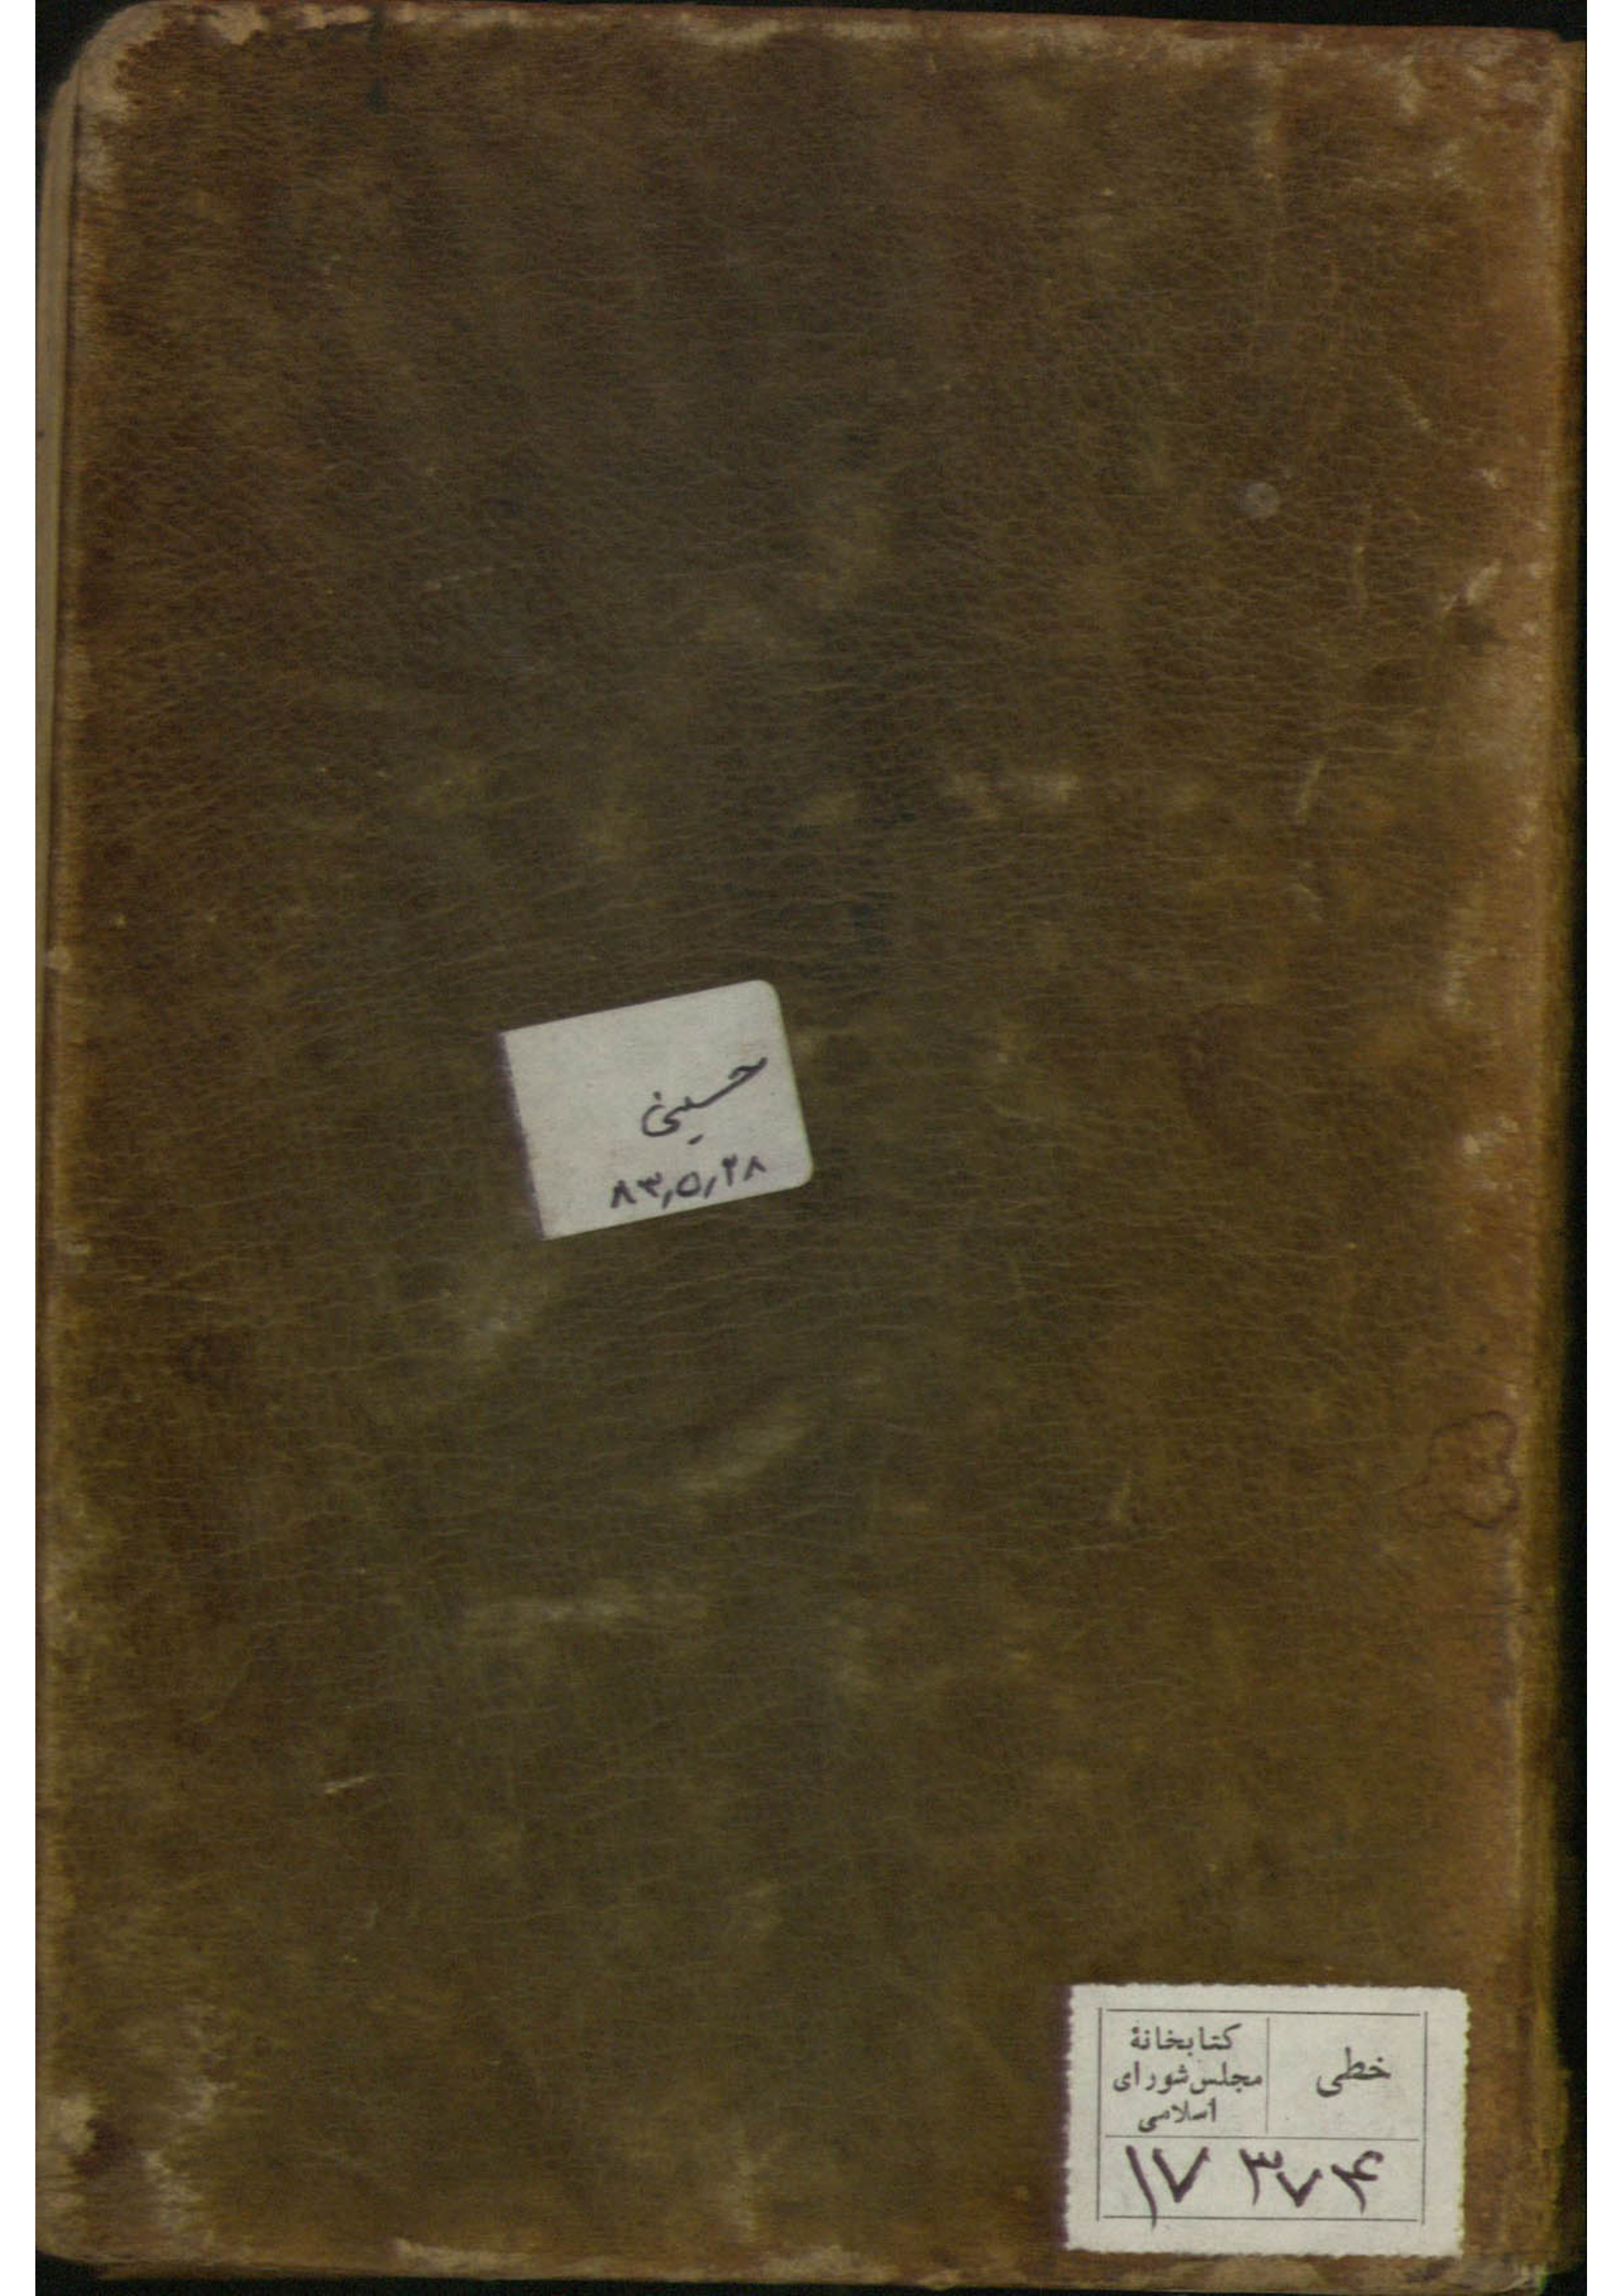 حسینی
۸۳٫۵٫۲۸
خطی
کتابخانهٔ
مجلس شورای
اسلامی
۱۷۳۷۴